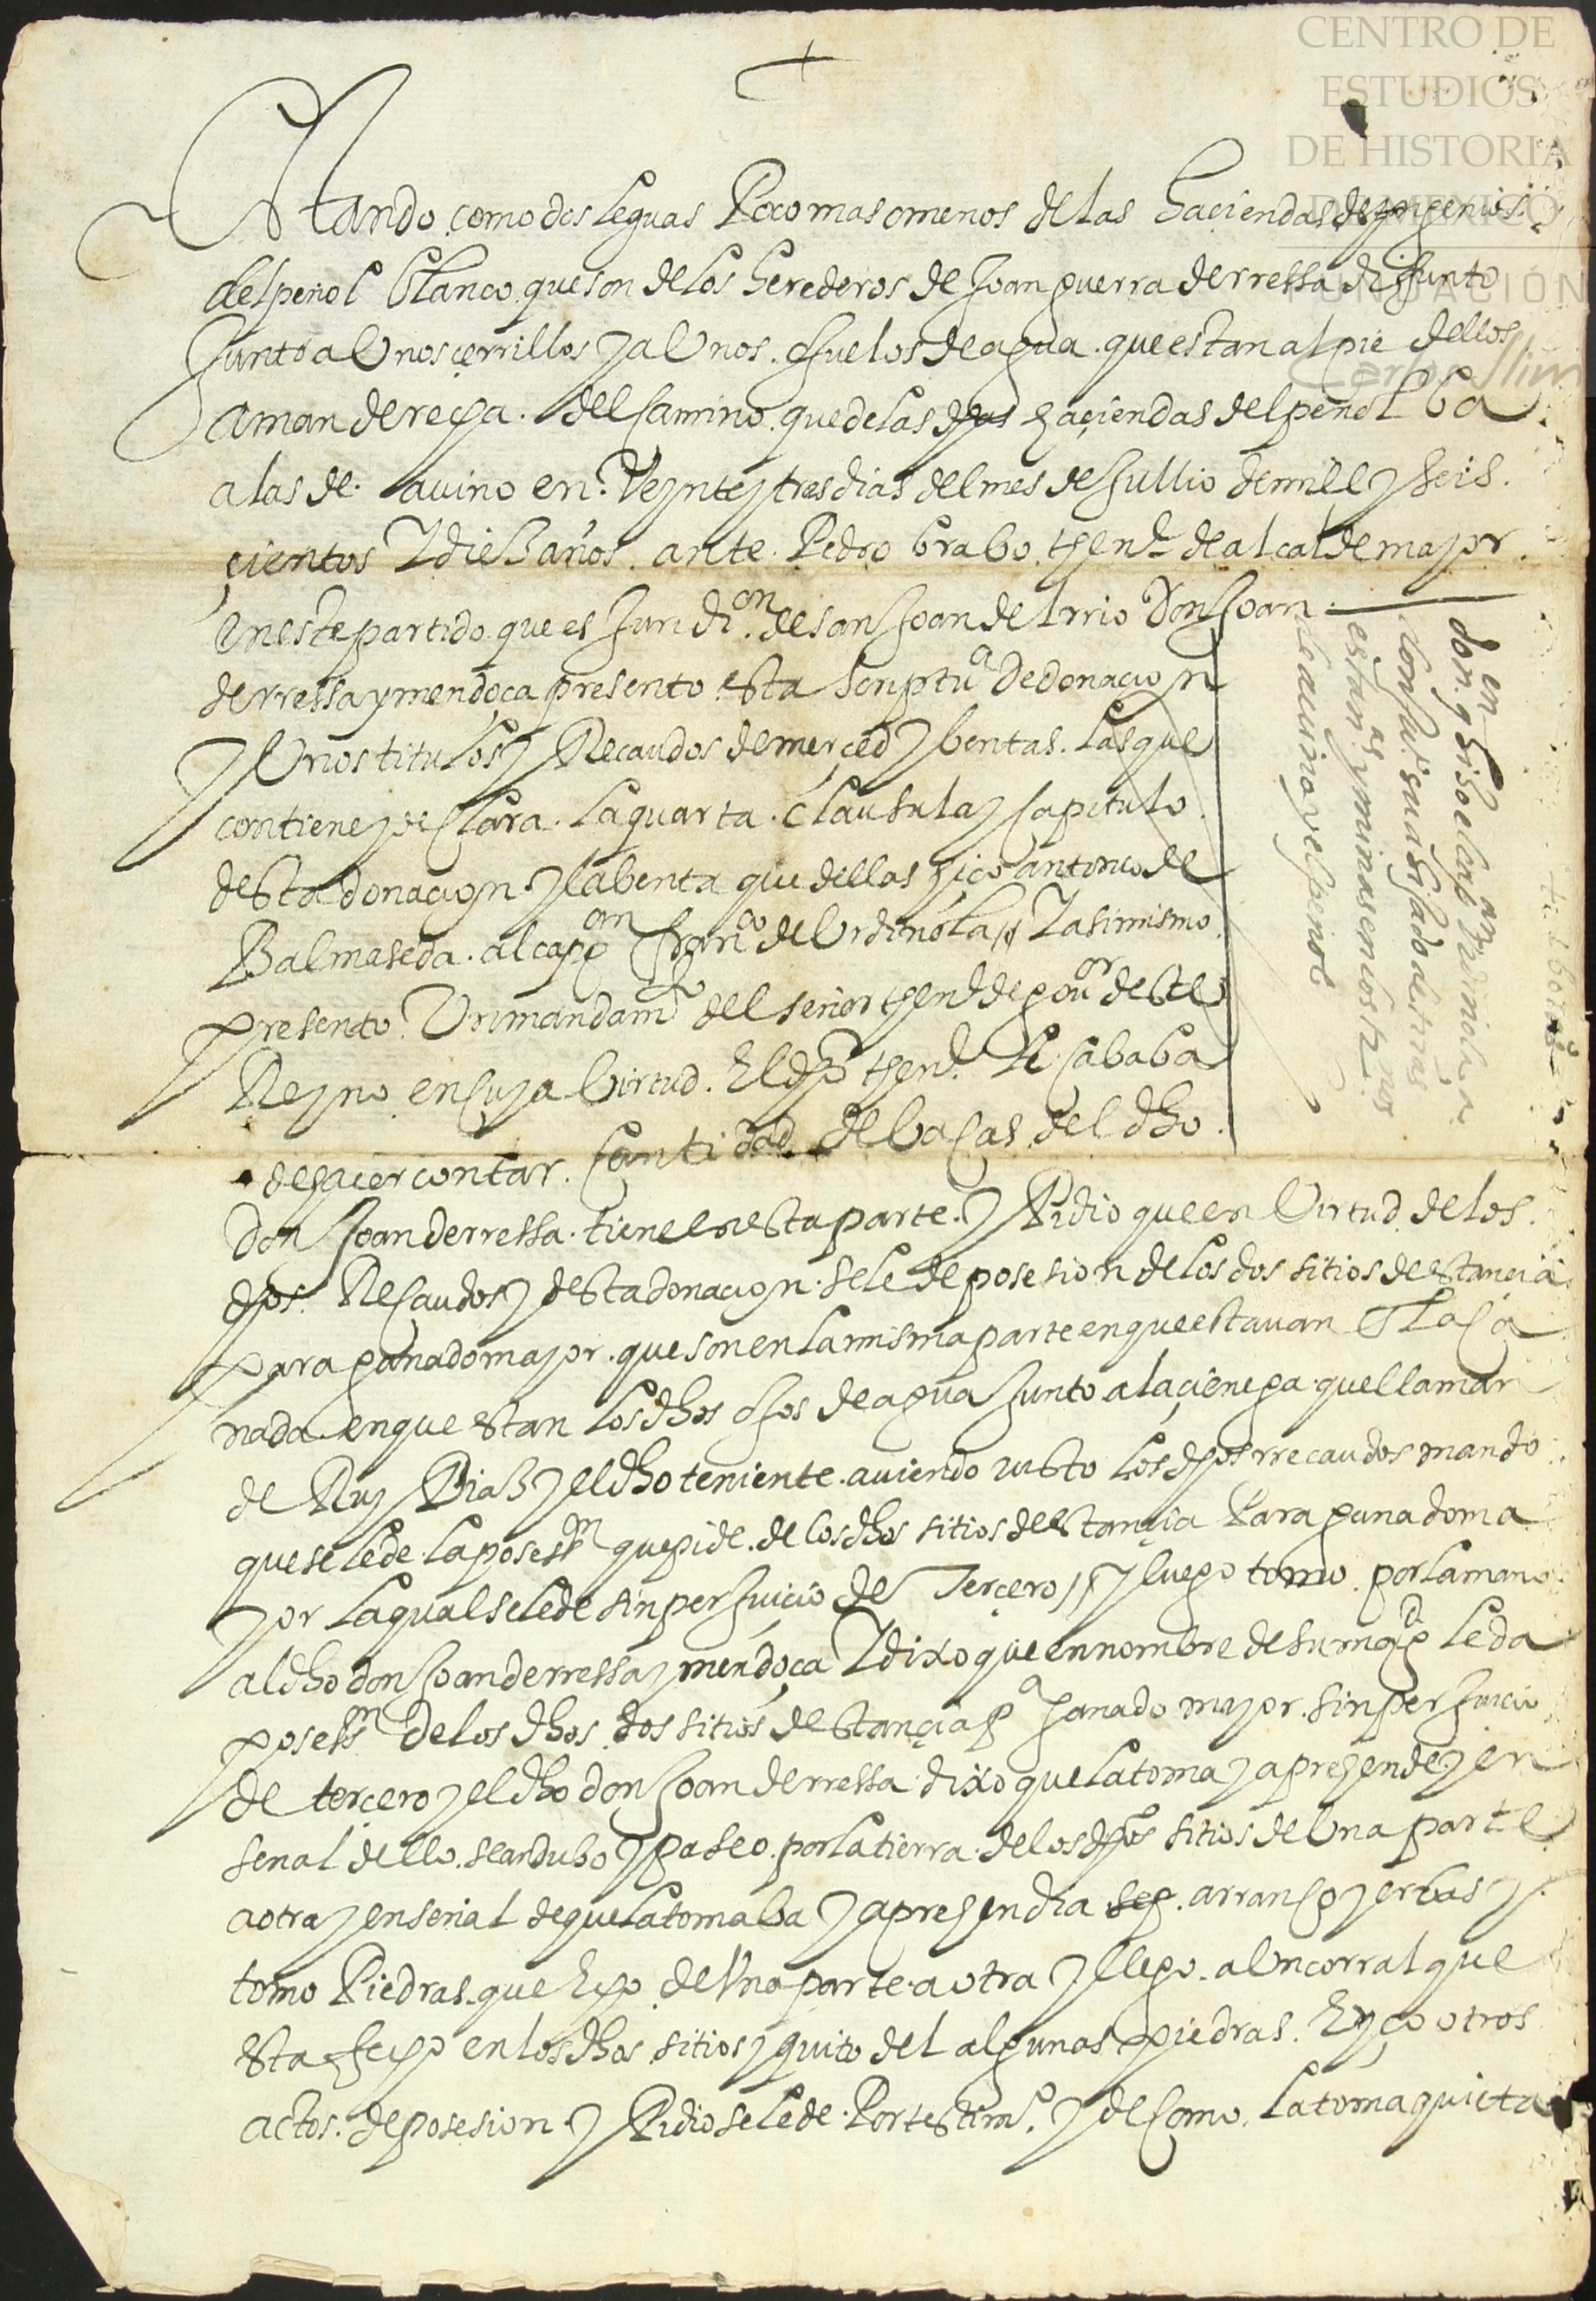 CENTRO DE
ESTUDIOS
DE HISTORIA
DE MÉXICO
FUNDACIÓN
Carlos Slim
Estando como dos leguas Poco mas o menos de las haciendas de yngenios
del peñol blanco que son de los herederos de Joan guerra derressa difunto
Junto a Unos cerrillos y a Unos ojuelos de agua que estan al pie dellos
a man derecha del Camino que de las dhas haçiendas del peñol ba
a las de avino en Veynte y tres dias del mes de Jullio de mill y seis
çientos Y dieß años ante Pedro brabo thente de alcalde mayor
en este partido que es Juridion de san Joan del rrio Don Joan
derressa y mendoça presento esta scriptua de donacion
y Unos titulos y Recaudos de merced y bentas las que
contiene y declara la quarta clausula y capitulo
desta donacion y la benta que dellas hiço antonio de
Balmaseda al cappan franco de Urdinola // Y asimismo
presento Un mandamto del señor thente de gouor deste
Reyno en Cuya birtud El dho thente le Cababa
de hacer contar Cantidad de baCas del dho
don Joan derressa tiene en esta parte y Pidio que en Virtud de los
dhos ReCaudos y desta donacion se le de posesion de los dos sitios de estancia
para ganado mayor que son en la misma parte en que estavan
nada en que estan los dhos ojos de agua Junto a la cienega que llaman
de Ruy Diaß y el dho teniente aviendo visto los dhos rrecaudos mando
que se le de la posesson que pide de los dhos sitios de estançia Para ganado ma
yor la qual se le de sin perJuicio de Terçero // Y luego tomo por la mano
al dho don Joan derressa y mendoça Y dixo que en nombre de su magd le da
posesson de los dhos dos sitios de estançia pa ganado mayor sin perJuicio
de tercero y el dho don Joan derressa dixo que la toma y aprehende y en
señal dello se andubo y paseo por la tierra de los dhos sitios de Una parte
a otra y en señal de que la tomaba y aprehendia arranco yerbas y
tomo Piedras que hecho de Una parte a otra y llego a Un corral que
esta fecho en los dhos sitios y quito del algunas piedras Hyço otros
actos de posesion y Pidio se le de Por testimo y de Como la toma quieta
en
don
están y minas en los
de avino y el peñol